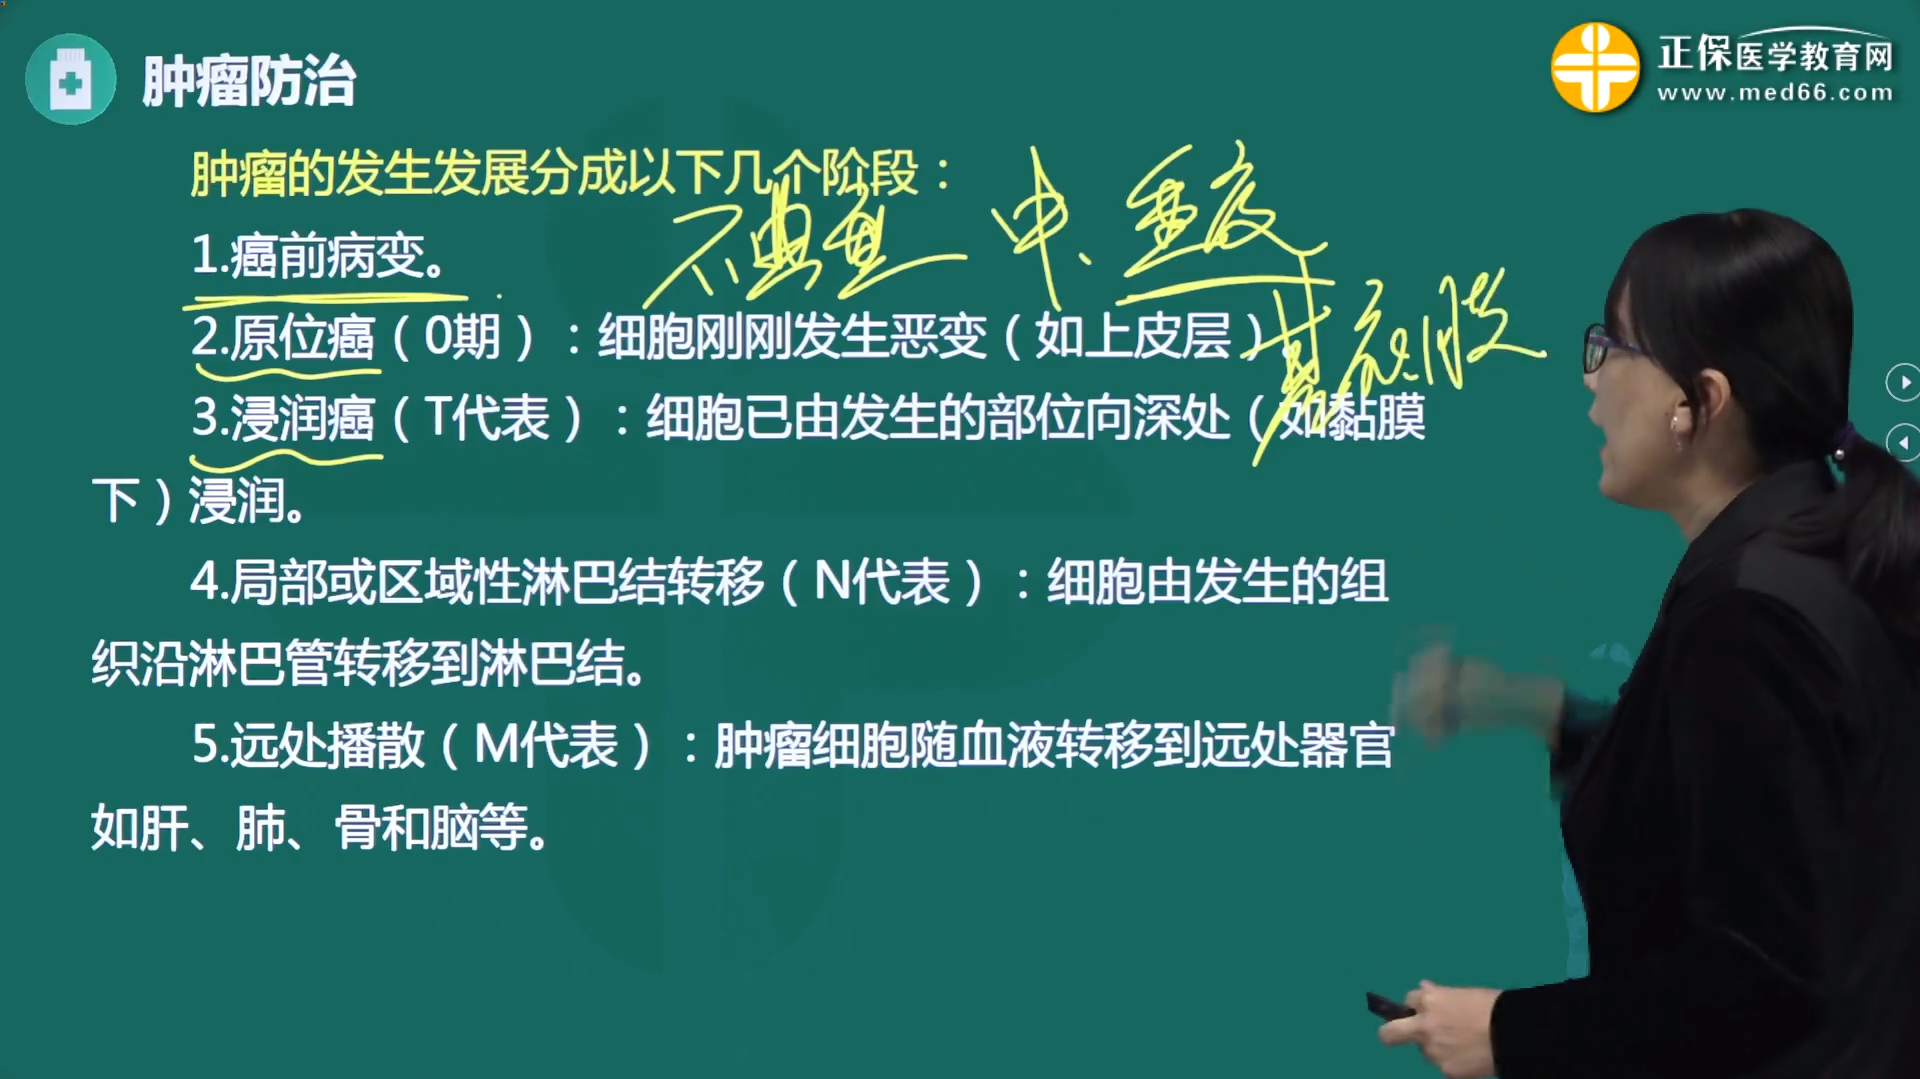 肿瘤防治
正保医学教育网
www.med66.com
肿瘤的发生发展分成以下几个阶段：
不典型 中、重度
1.癌前病变。
2.原位癌（0期）：细胞刚刚发生恶变（如上皮层）
基底膜
3.浸润癌（T代表）：细胞已由发生的部位向深处（如黏膜
下）浸润。
4.局部或区域性淋巴结转移（N代表）：细胞由发生的组
织沿淋巴管转移到淋巴结。
5.远处播散（M代表）：肿瘤细胞随血液转移到远处器官
如肝、肺、骨和脑等。